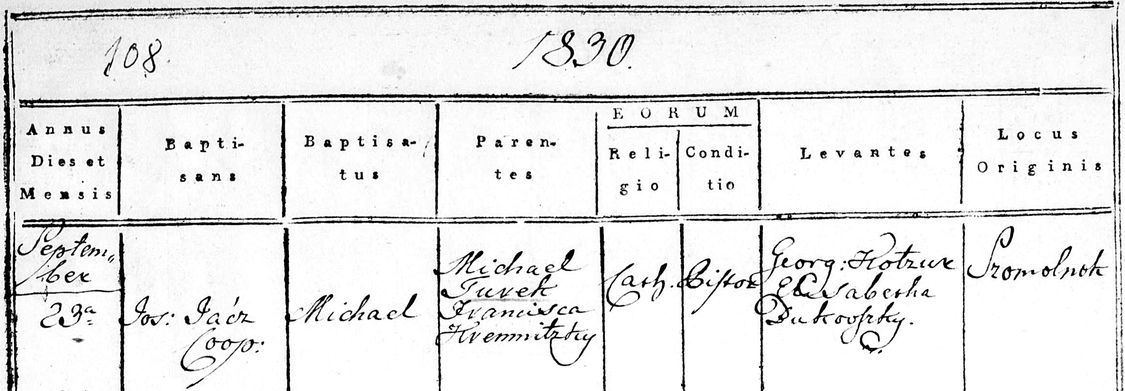 108.
1830.
Annus
Dies et
Mensis
Bapti-
sans
Baptisa-
tus
Paren-
tes
EORUM
Reli-
gio
Condi-
tio
Levantes
Locus
Originis
Septem,
ber
23ª
Jos: Jácz
Coop:
Michael
Michael
Turek
Francisca
Kremnitzky
Cath.
Pistor
Georg: Kotzur
Elisabetha
Dukovszky.
Szomolnok